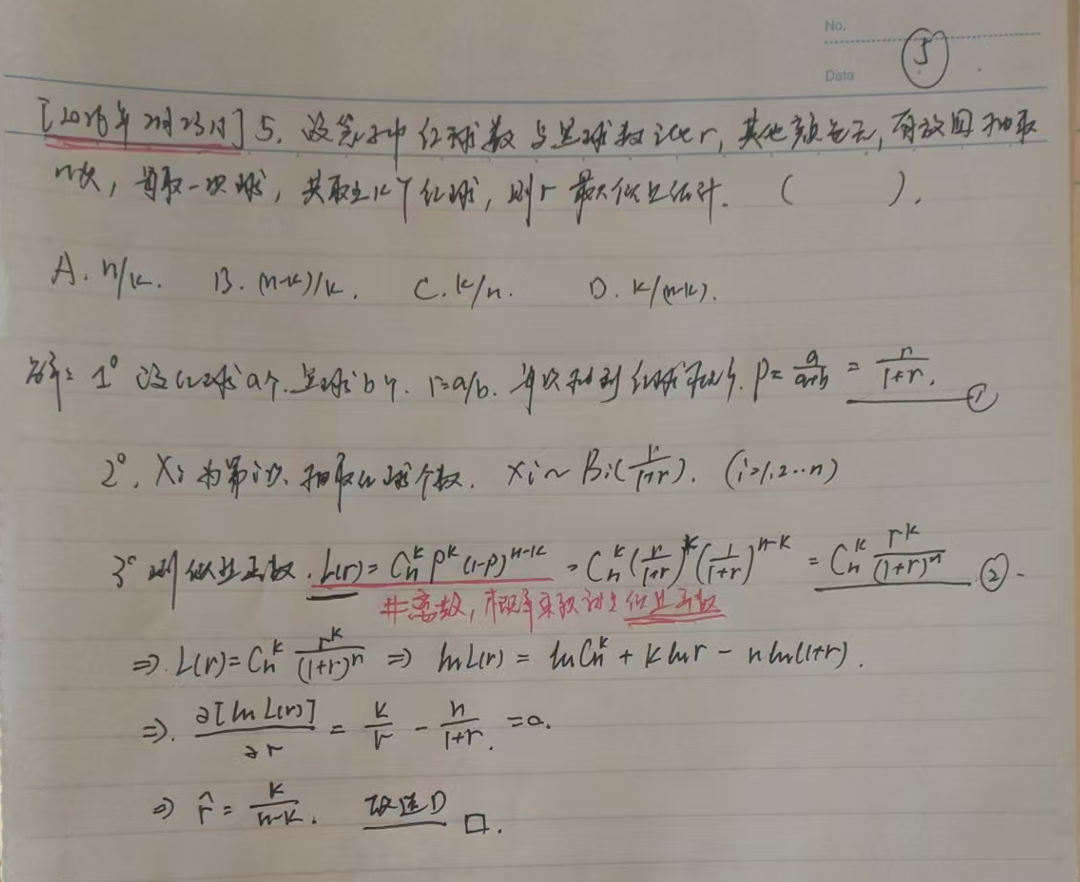 No.
5
Date
[2026年2月23日] 5. 设袋中红球数与黑球数记比r, 其他颜色无, 有放回抽取
n次, 每取一次球, 共取出k个红球, 则r最大似然估计. ( ).
A. n/k. B. (n-k)/k. C. k/n. D. k/(n-k).
解: 1° 设红球a个, 黑球b个. r=a/b. 每次抽到红球概率. P= a/(a+b) = r/(1+r). ①
2°. Xi为第i次抽取红球个数. Xi ~ Bi(r/(1+r)). (i=1,2...n)
3° 则似然函数. L(r) = C_n^k P^k (1-P)^{n-k} = C_n^k (r/(1+r))^k (1/(1+r))^{n-k} = C_n^k r^k/(1+r)^n ②.
#离散, 概率乘积为似然函数
⇒. L(r) = C_n^k r^k/(1+r)^n ⇒ lnL(r) = lnC_n^k + k lnr - n ln(1+r).
⇒. ∂[lnL(r)]/∂r = k/r - n/(1+r) = 0.
⇒ r̂ = k/(n-k). 故选D □.